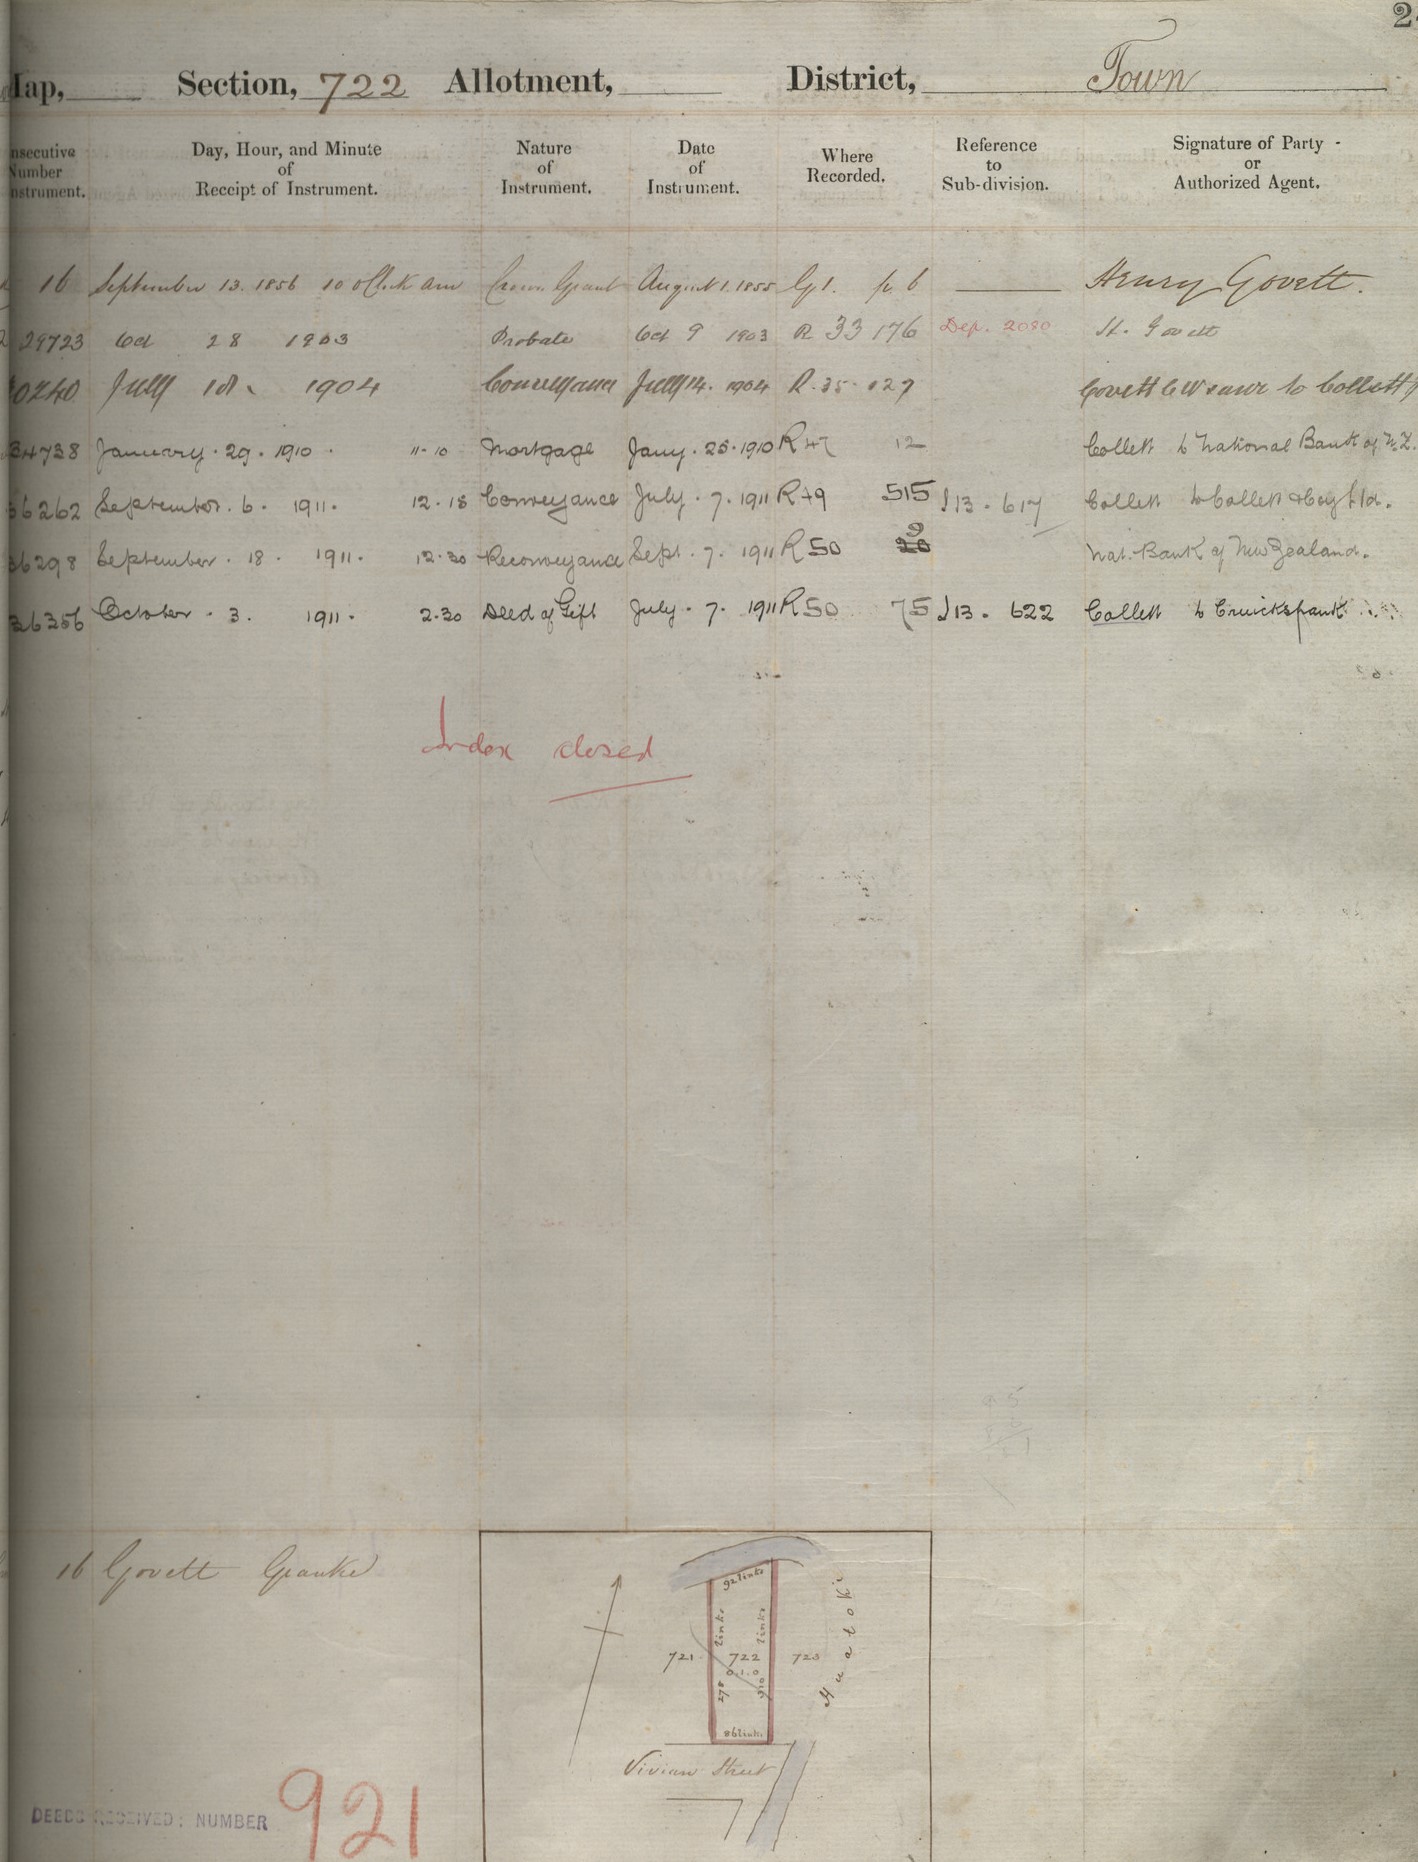 2
Map, Section, 722 Allotment, District, Town
nsecutive Number nstrument.
Day, Hour, and Minute of Receipt of Instrument.
Nature of Instrument.
Date of Instrument.
Where Recorded.
Reference to Sub-division.
Signature of Party or Authorized Agent.
16 September 13. 1856 10 oClock am Crown Grant August 1. 1855 G 1. p. 6 Henry Govett.
29723 Oct 28 1903 Probate Oct 9 1903 R 33 176 Dep. 2080 H. Govett
0240 July 18. 1904 Conveyance July 14. 1904 R. 35. 127 Govett to Collett
34738 January. 29. 1910. 11-10 Mortgage Jany. 25. 1910 R 47 12 Collett to National Bank of N.Z.
36262 September. 6. 1911. 12.15 Conveyance July. 7. 1911 R 49 515 I 13. 617 Collett to Collett & Coy Ltd.
36298 September. 18. 1911. 12.30 Reconveyance Sept. 7. 1911 R 50 9 Nat. Bank of New Zealand.
36356 October. 3. 1911. 2.30 Deed of Gift July. 7. 1911 R 50 75 I 13. 622 Collett to Cruickshank
Index closed
16 Govett Grantee
92 links
links
links
721
722
723
0.1.0
278
310
86 links
Huatoki
Vivian Street
DEEDS RECEIVED: NUMBER 921